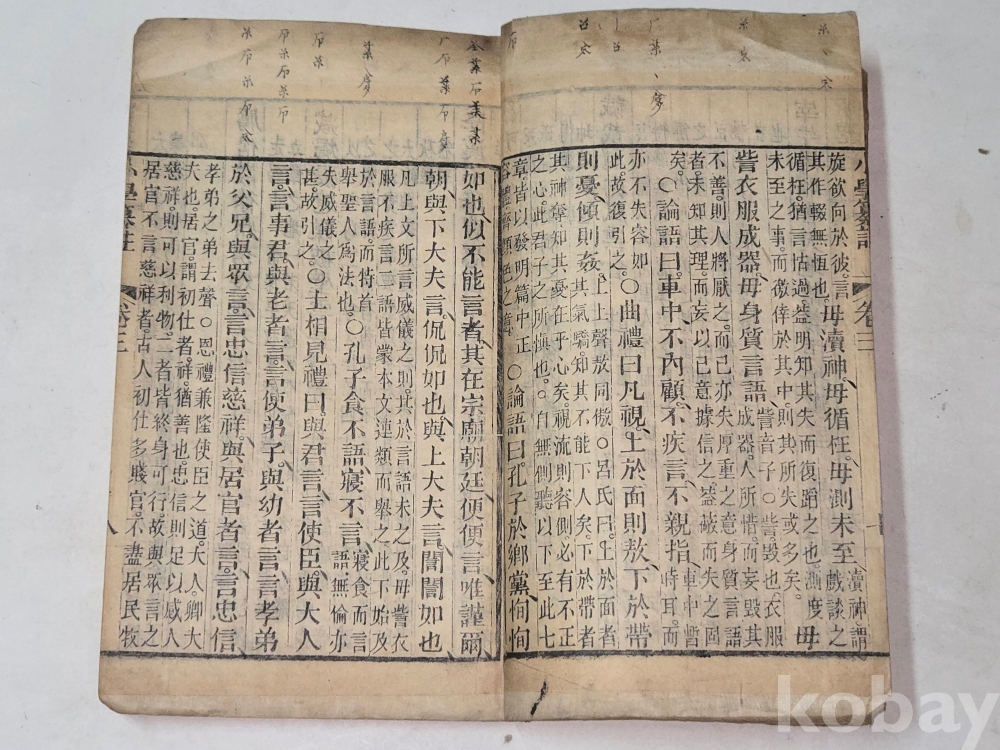 小學纂註 卷三
旋欲向於彼。言
其作輟無恒也。
毋瀆神毋循枉毋測未至
瀆神謂
戲談
循枉猶言怙過。益明知其失而復蹈之也。測度
未至之事而徼倖於其中則其所失或多矣。
毋
訾衣服成器。毋身質言語
訾音子○訾。毀也。衣服
成器。人所惜而妄毀其
不善。則人將厭之。而己亦失厚重之意。身質言語
者。未知其理。而妄以己意據信之。益蔽而失之固
矣。
○論語曰車中不內顧不疾言不親指
車中暫
時耳而
亦不失容如
此故復引之。
○曲禮曰凡視上於面則敖下於帶
則憂傾則姦
上。上聲敖同傲。○呂氏曰上於面者
其氣驕知其不能下人矣。下於帶者
其神奪知其憂在乎心矣。視流則容側。必有不正
之心。此君子之所慎也。○自無側聽以下至此七
章。皆以發明篇中正
容體齊顏色之意。
○論語曰孔子於鄉黨恂恂
如也似不能言者其在宗廟朝廷便便言唯謹爾
朝與下大夫言侃侃如也與上大夫言誾誾如也
凡上文所言威儀之則其於言語未之及。毋訾衣
服不疾言二語皆蒙本文連類而舉之此下始及
於言語而特首
舉聖人爲法也。
○孔子食不語寢不言
寢食而言
語無倫亦
失威儀之
甚。故引之。
○士相見禮曰與君言言使臣與大人
言言事君與老者言言使弟子與幼者言言孝弟
於父兄與眾言言忠信慈祥與居官者言言忠信
孝弟之弟去聲○恩禮兼隆使臣之道。大人。卿大
夫也。居官謂初仕者。祥猶善也。忠信則足以感人
慈祥則可以利物。二者皆終身可行。故與眾言之
居官不言慈祥者古人初仕多賤官。不盡居民牧
小學纂註 卷三
kobay